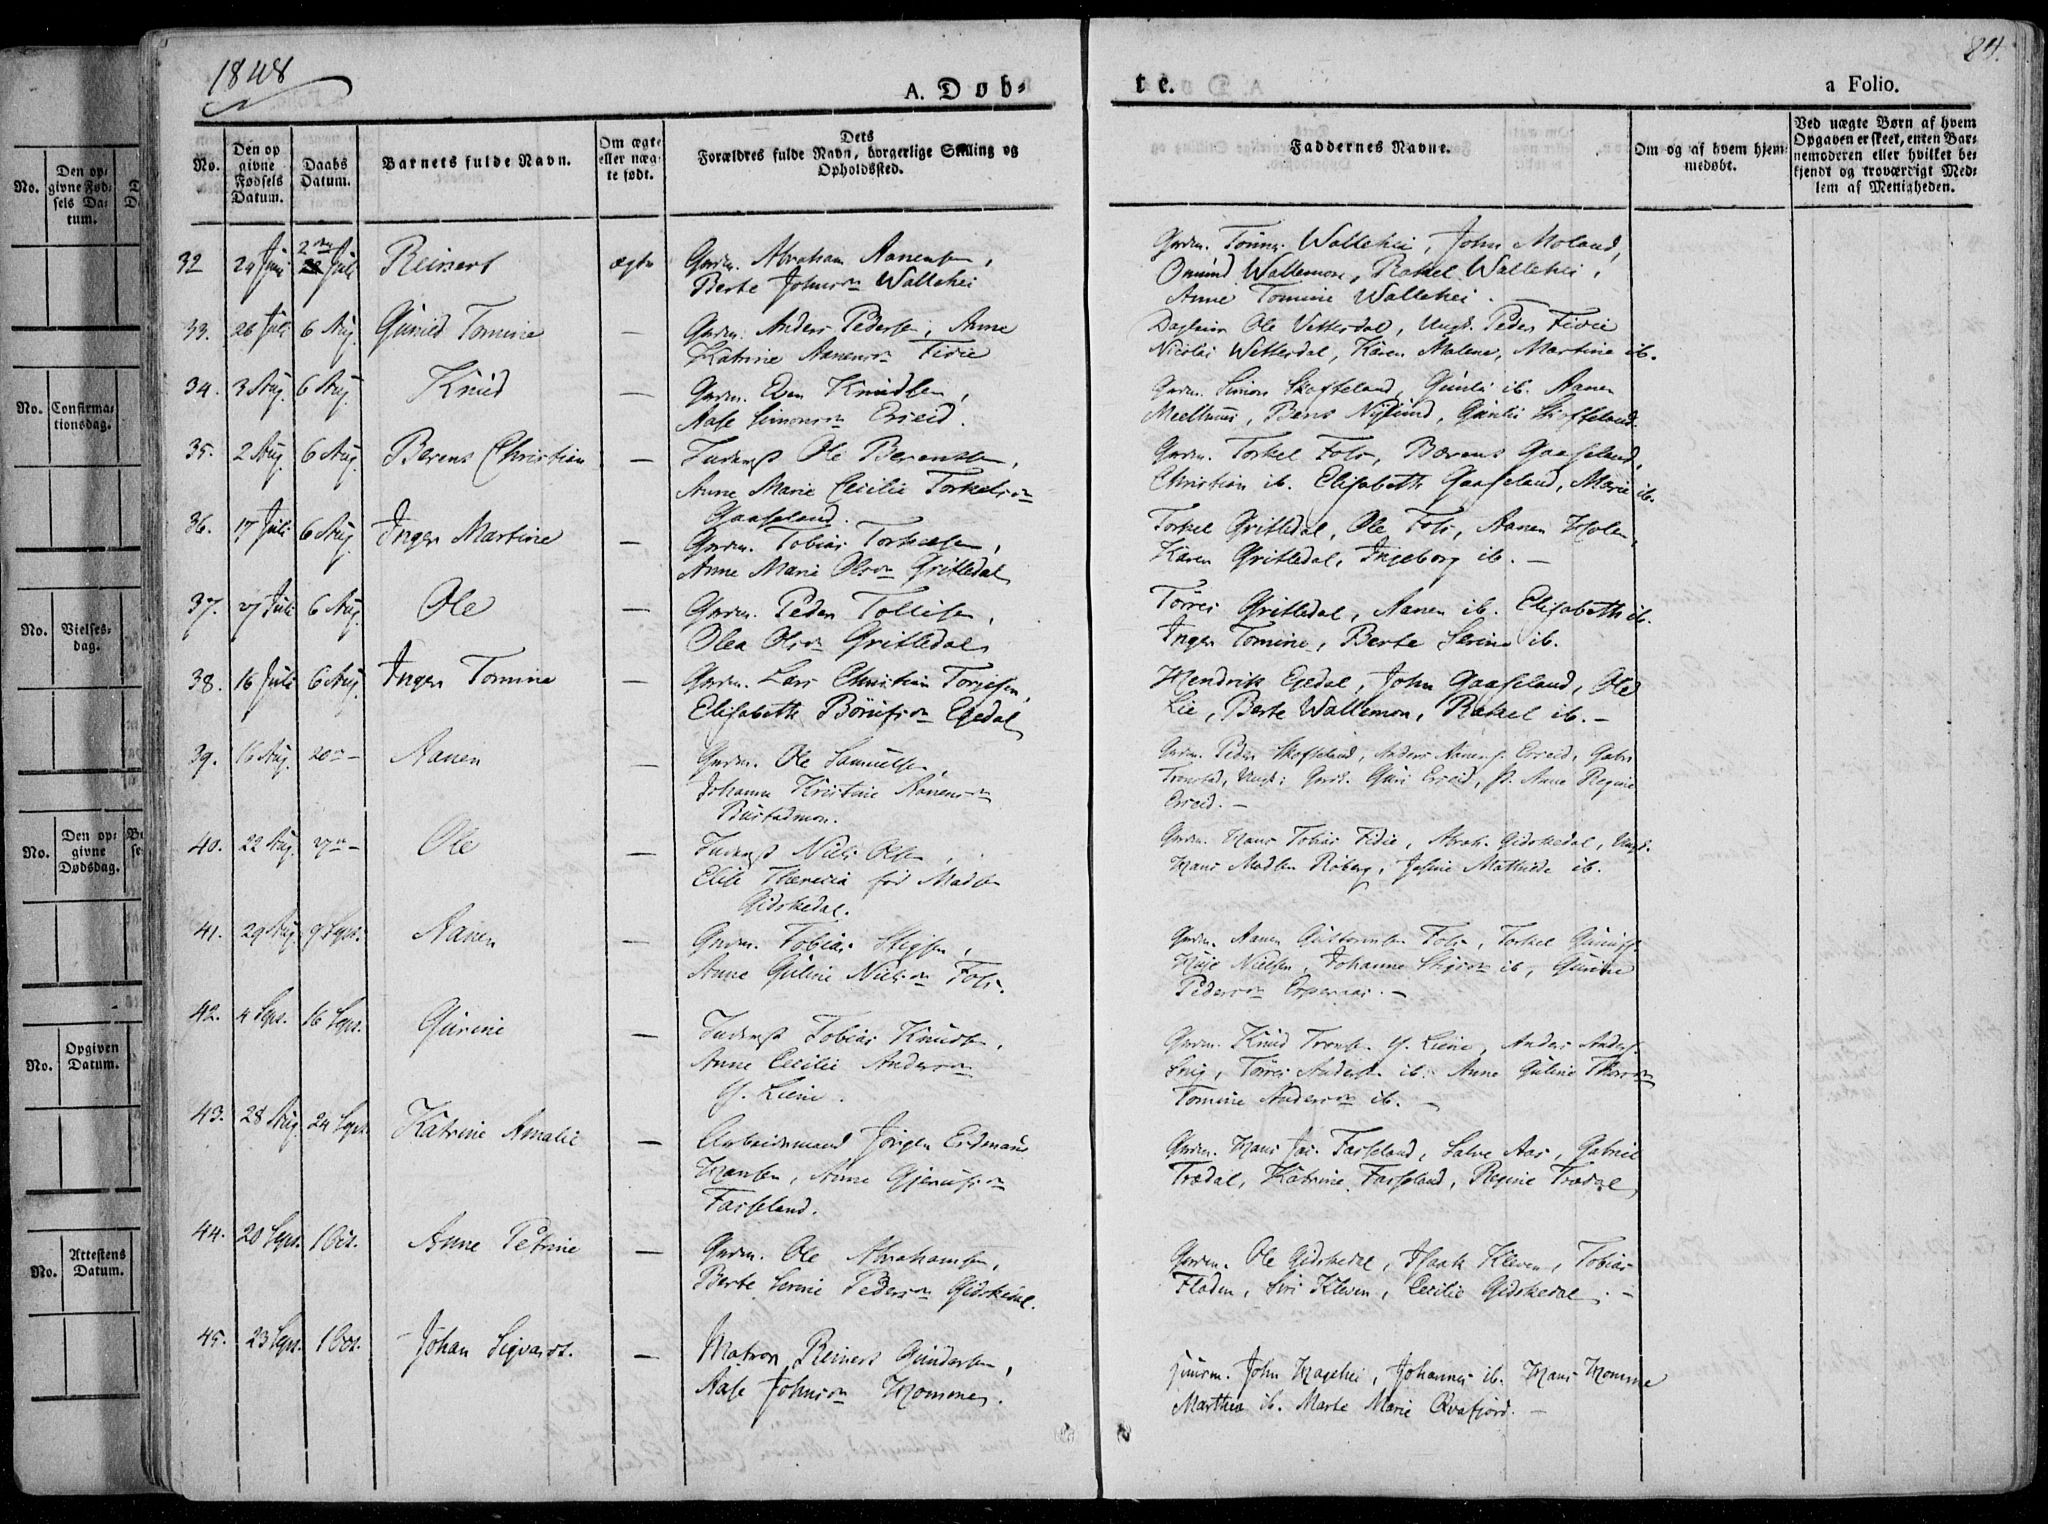 1848
A. Døb-
te.
a Folio.
84.
No.
Den op
givne
Fødsels
Datum.
Daabs
Datum.
Barnets fulde Navn.
Om ægte
eller uæg-
te født.
Dets
Forældres fulde Navn, borgerlige Stilling og
Opholdssted.
Faddernes Navne.
Om og af hvem hjem-
medøbt.
Ved uægte Børn af hvem
Opgaven er skeet, enten Bar-
nemoderen eller hvilket be-
kjendt og troværdigt Med-
lem af Menigheden.
32 24 Juni 2den Juli Reinert ægte Grdm. Abraham Aanensen,
Berte Johnsdn Wallehei
Grdm. Wallehei, John Moland,
Omund Wallemon, Rakel Wallehei,
Anne Tomine Wallehei.
33. 26 Juli 6 Aug. Gunild Tomine — Grdm. Anders Pedersen, Anne
Katrine Aanensdn Fidie
Ole Vetterdal, Ungk. Peder Fidie
Nicolai Wetterdal, Karen Malene, Martine ib.
34. 3 Aug. 6 Aug. Knud — Grdm. Even Knudsen,
Aase Simonsdn Erseid.
Grdm. Simon Skofteland, ib. Aanen
Meelhuus, Berns Nylund, Skofteland.
35. 2 Aug. 6 Aug. Berens Christian — Inderst Ole Berensen,
Anne Marie Cecilie Torkelsdn
Gaaseland.
Grdm. Torkel Foss, Børens Gaaseland,
Christian ib. Elisabeth Gaaseland, Marie ib.
36. 17 Juli 6 Aug Inger Martine — Grdm. Tobias Torkelsen,
Anne Marie Olsdn Gritledal
Torkel Gritledal, Ole Foss, Aanen Holen,
Karen Gritledal, Ingeborg ib. —
37. 27 Juli 6 Aug. Ole — Grdm. Peder Tollisen,
Olea Olsdn Gritledal
Tørres Gritledal, Aanen ib. Elisabeth ib.
Inger Tomine, Berte Serine ib.
38. 16 Juli 6 Aug. Inger Tomine — Grdm. Lars Christian Torjesen,
Elisabeth Egedal
Hendrik Egedal, John Gaaseland, Ole
Lie, Berte Wallemon, Rakel ib. —
39. 16 Aug. 20de — Aanen — Grdm. Ole Samuelsen,
Johanne Kristine Aanensdn
Bustadmon.
Grdm. Peder Skofteland, Anders Aanens. Erseid, Gabr.
Tronstad, Guri Erseid, p. Anne Regine
Erseid. —
40. 22 Aug. 27de — Ole — Inderst Niels Olsen,
Elise Theresia fød Madsen
Gidskedal.
Grdm. Hans Tobias Fidie, Abrah. Gidskedal, Ungk.
Hans Madsen Roberg, Josine Mathilde ib.
41. 29 Aug. 9 Sept. Aanen — Grdm. Tobias Stigsen,
Anne Guline Nielsdn Foss.
Grdm. Aanen Guttormsen Foss, Torkel
Nielsen, Johanne Stigsdn ib, Gurine
Pedersdn —
42. 4 Sept. 16 Sept. Gurine — Inderst Tobias Knuds.,
Anne Cecilie Andersdn
Y. Liene.
Grdm. Knud Trons. Y. Liene, Anders Anders.
Snig, Tørres Anders. ib. Anne Guline
Tomine Andersdn ib. —
43. 28 Aug. 24 Sept. Katrine Amalie — Arbeidsmand Jørgen Erdmann
Hansen, Anne
Fasseland.
Grdm. Hans Jac. Fasseland, Salve Aas, Gabriel
Trædal, Katrine Fasseland, Regine Trædal
44. 20 Sept. 1 Oct. Anne Petrine — Grdm. Ole Abrahamsen,
Berte Serine Pedersdn Gidskedal.
Grdm. Ole Gidskedal, Isaak Kleven, Tobias
Fladen, Siri Kleven, Cecilie Gidskedal. —
45. 23 Sept. 1 Oct. Johan Sigvardt. — Matros Reinert Gundersen,
Aase Johnsdn Homme.
John Hagehei, Johannes ib. Hans Homme
Marthea ib. Marte Marie Qvafjord. —
No.
Den op-
givne Fød-
sels Da-
tum.
No.
Confirma-
tionsdag.
No.
Vielses-
dag.
No.
Den op-
givne
Dødsdag.
No.
Opgiven
Datum.
No.
Attestens
Datum.